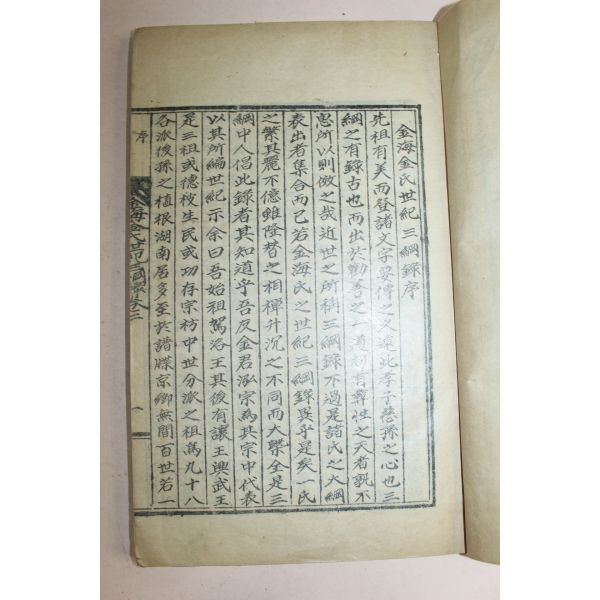 金海金氏世紀三綱錄序
先祖有美而登諸文字要傳之久遠此孝子慈孫之心也三
綱之有錄古也而出於勸善之一道初有尋性之天者孰不
思所以則倣之哉近世之所稱三綱錄不過是諸氏之大綱
表出者集合而已若金海氏之世紀三綱錄異乎是矣一氏
之繁其麗不億雖隆替之相禪升沉之不同而大槩全是三
綱中人倡此錄者其知道乎吾友金君泓宗為其宗中代表
以其所編世紀示余曰吾始祖駕洛王其後有讓王興武王
是三祖或德被生民或功存宗祊中世分派之祖為九十八
各派後孫之植根湖南居多至於譜牒京鄉無間百世若一
序
金海金氏世紀三綱錄卷之三
一